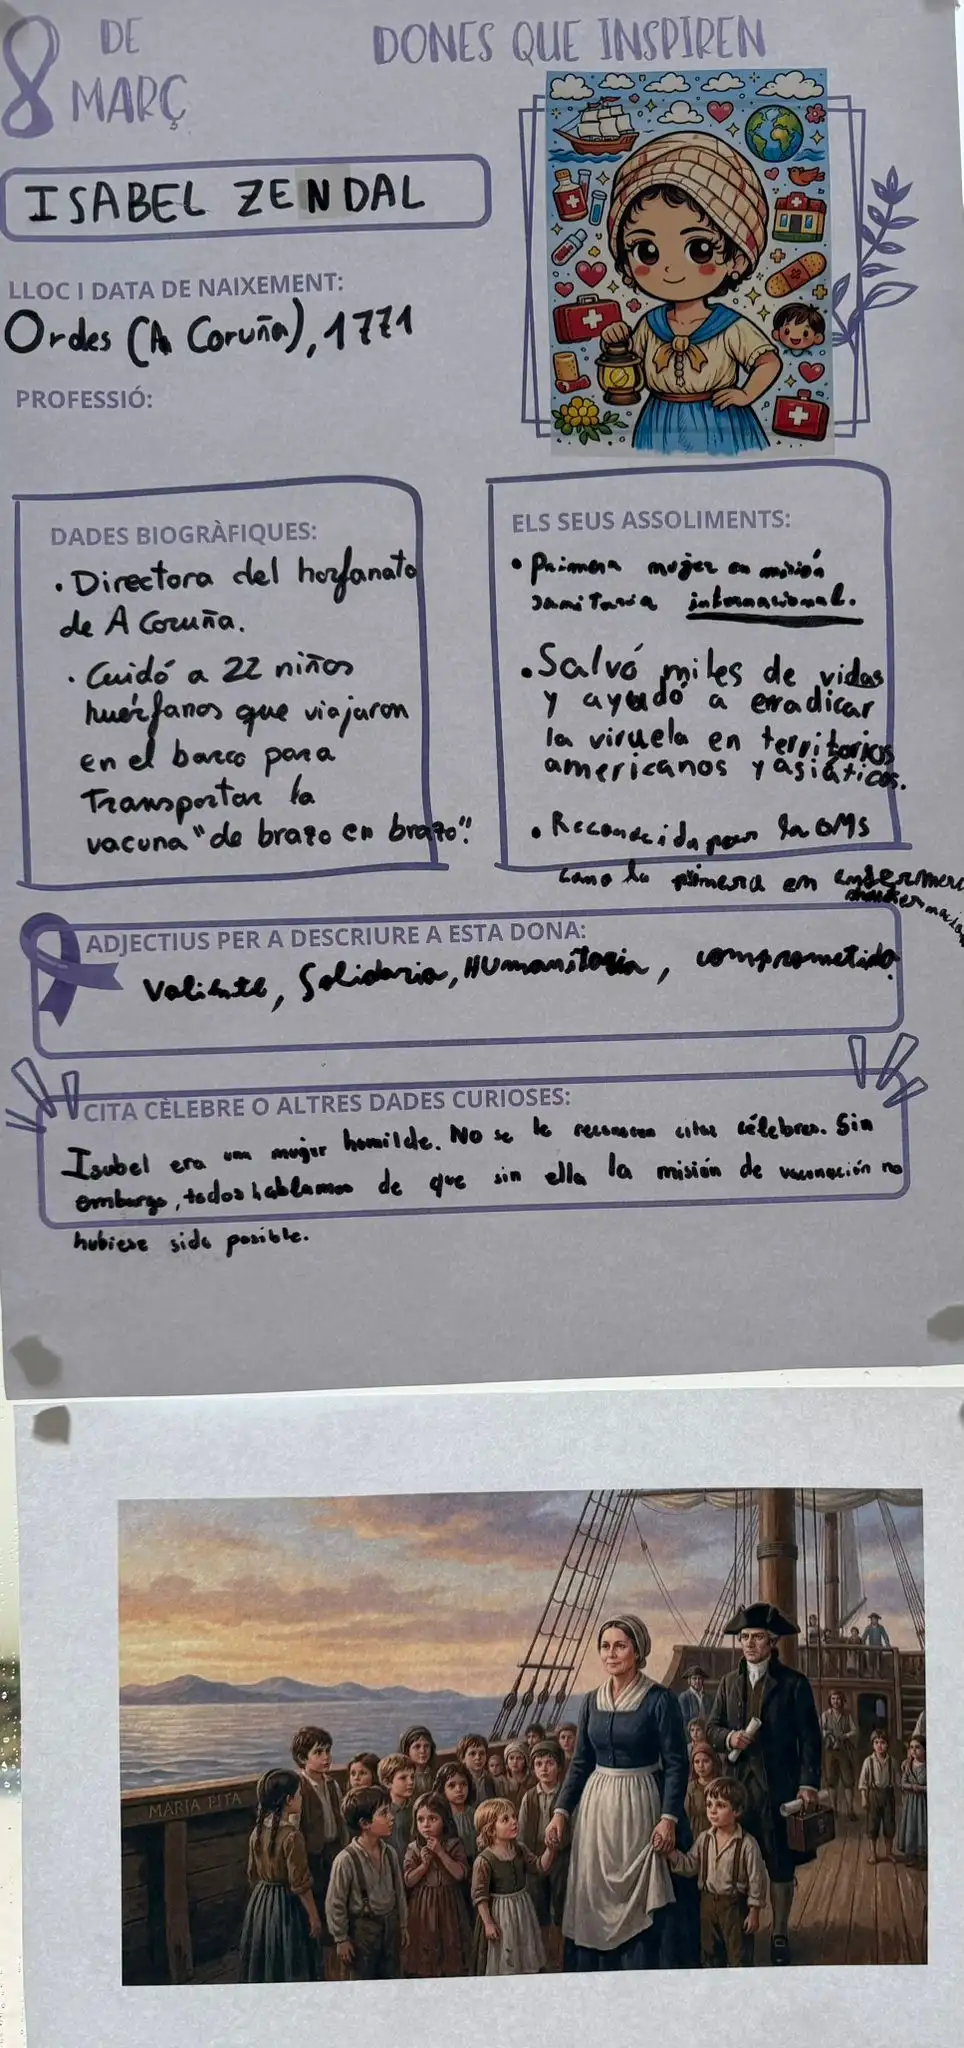 8 DE MARÇ
DONES QUE INSPIREN
ISABEL ZENDAL
LLOC I DATA DE NAIXEMENT:
Ordes (A Coruña), 1771
PROFESSIÓ:
DADES BIOGRÀFIQUES:
• Directora del horfanato
de A Coruña.
• Cuidó a 22 niños
huérfanos que viajaron
en el barco para
Transportar la
vacuna "de brazo en brazo".
ELS SEUS ASSOLIMENTS:
• Primera mujer en misión
sanitaria internacional.
• Salvó miles de vidas
y ayudó a erradicar
la viruela en territorios
americanos y asiáticos.
• Reconocida por la OMS
como la primera en enfermera
ADJECTIUS PER A DESCRIURE A ESTA DONA:
Valiente, Solidaria, HUmanitaria, comprometida.
CITA CÈLEBRE O ALTRES DADES CURIOSES:
Isabel era una mujer homilde. No se le reconocen citas célebres. Sin
embargo, todos hablamos de que sin ella la misión de vacunación no
hubiese sido posible.
MARIA PITA